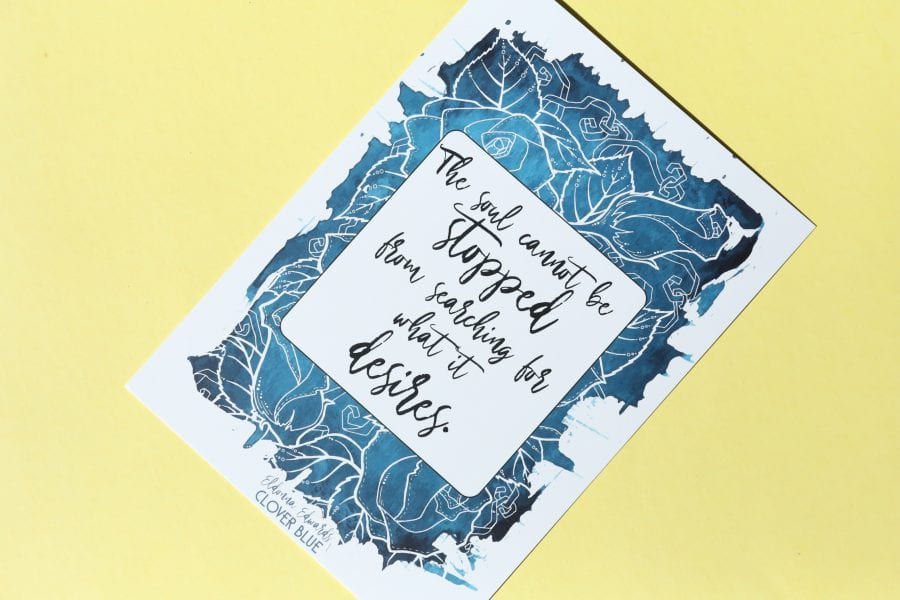 The soul cannot be
stopped
from searching for
what it
desires.
Eldonna Edwards
CLOVER BLUE